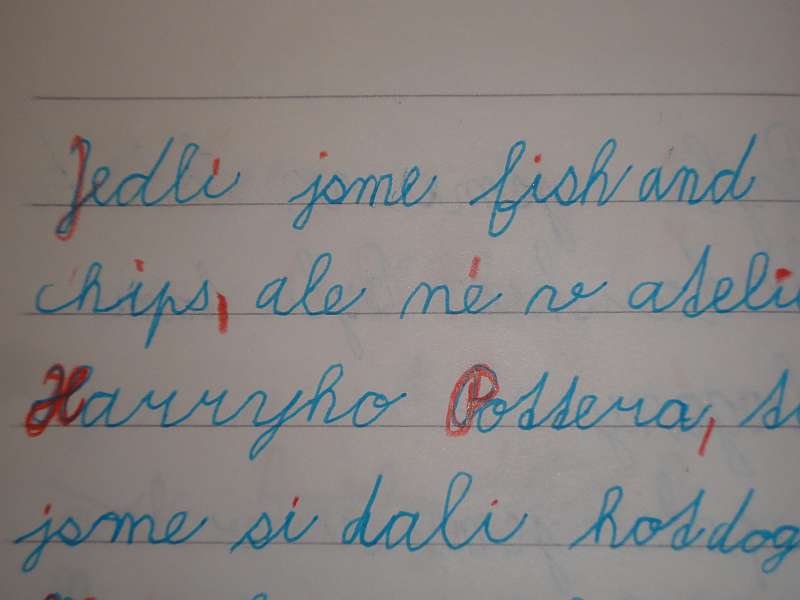 Jedli jsme fish and
chips, ale né v ateli
Harryho Pottera,
jsme si dali hotdog